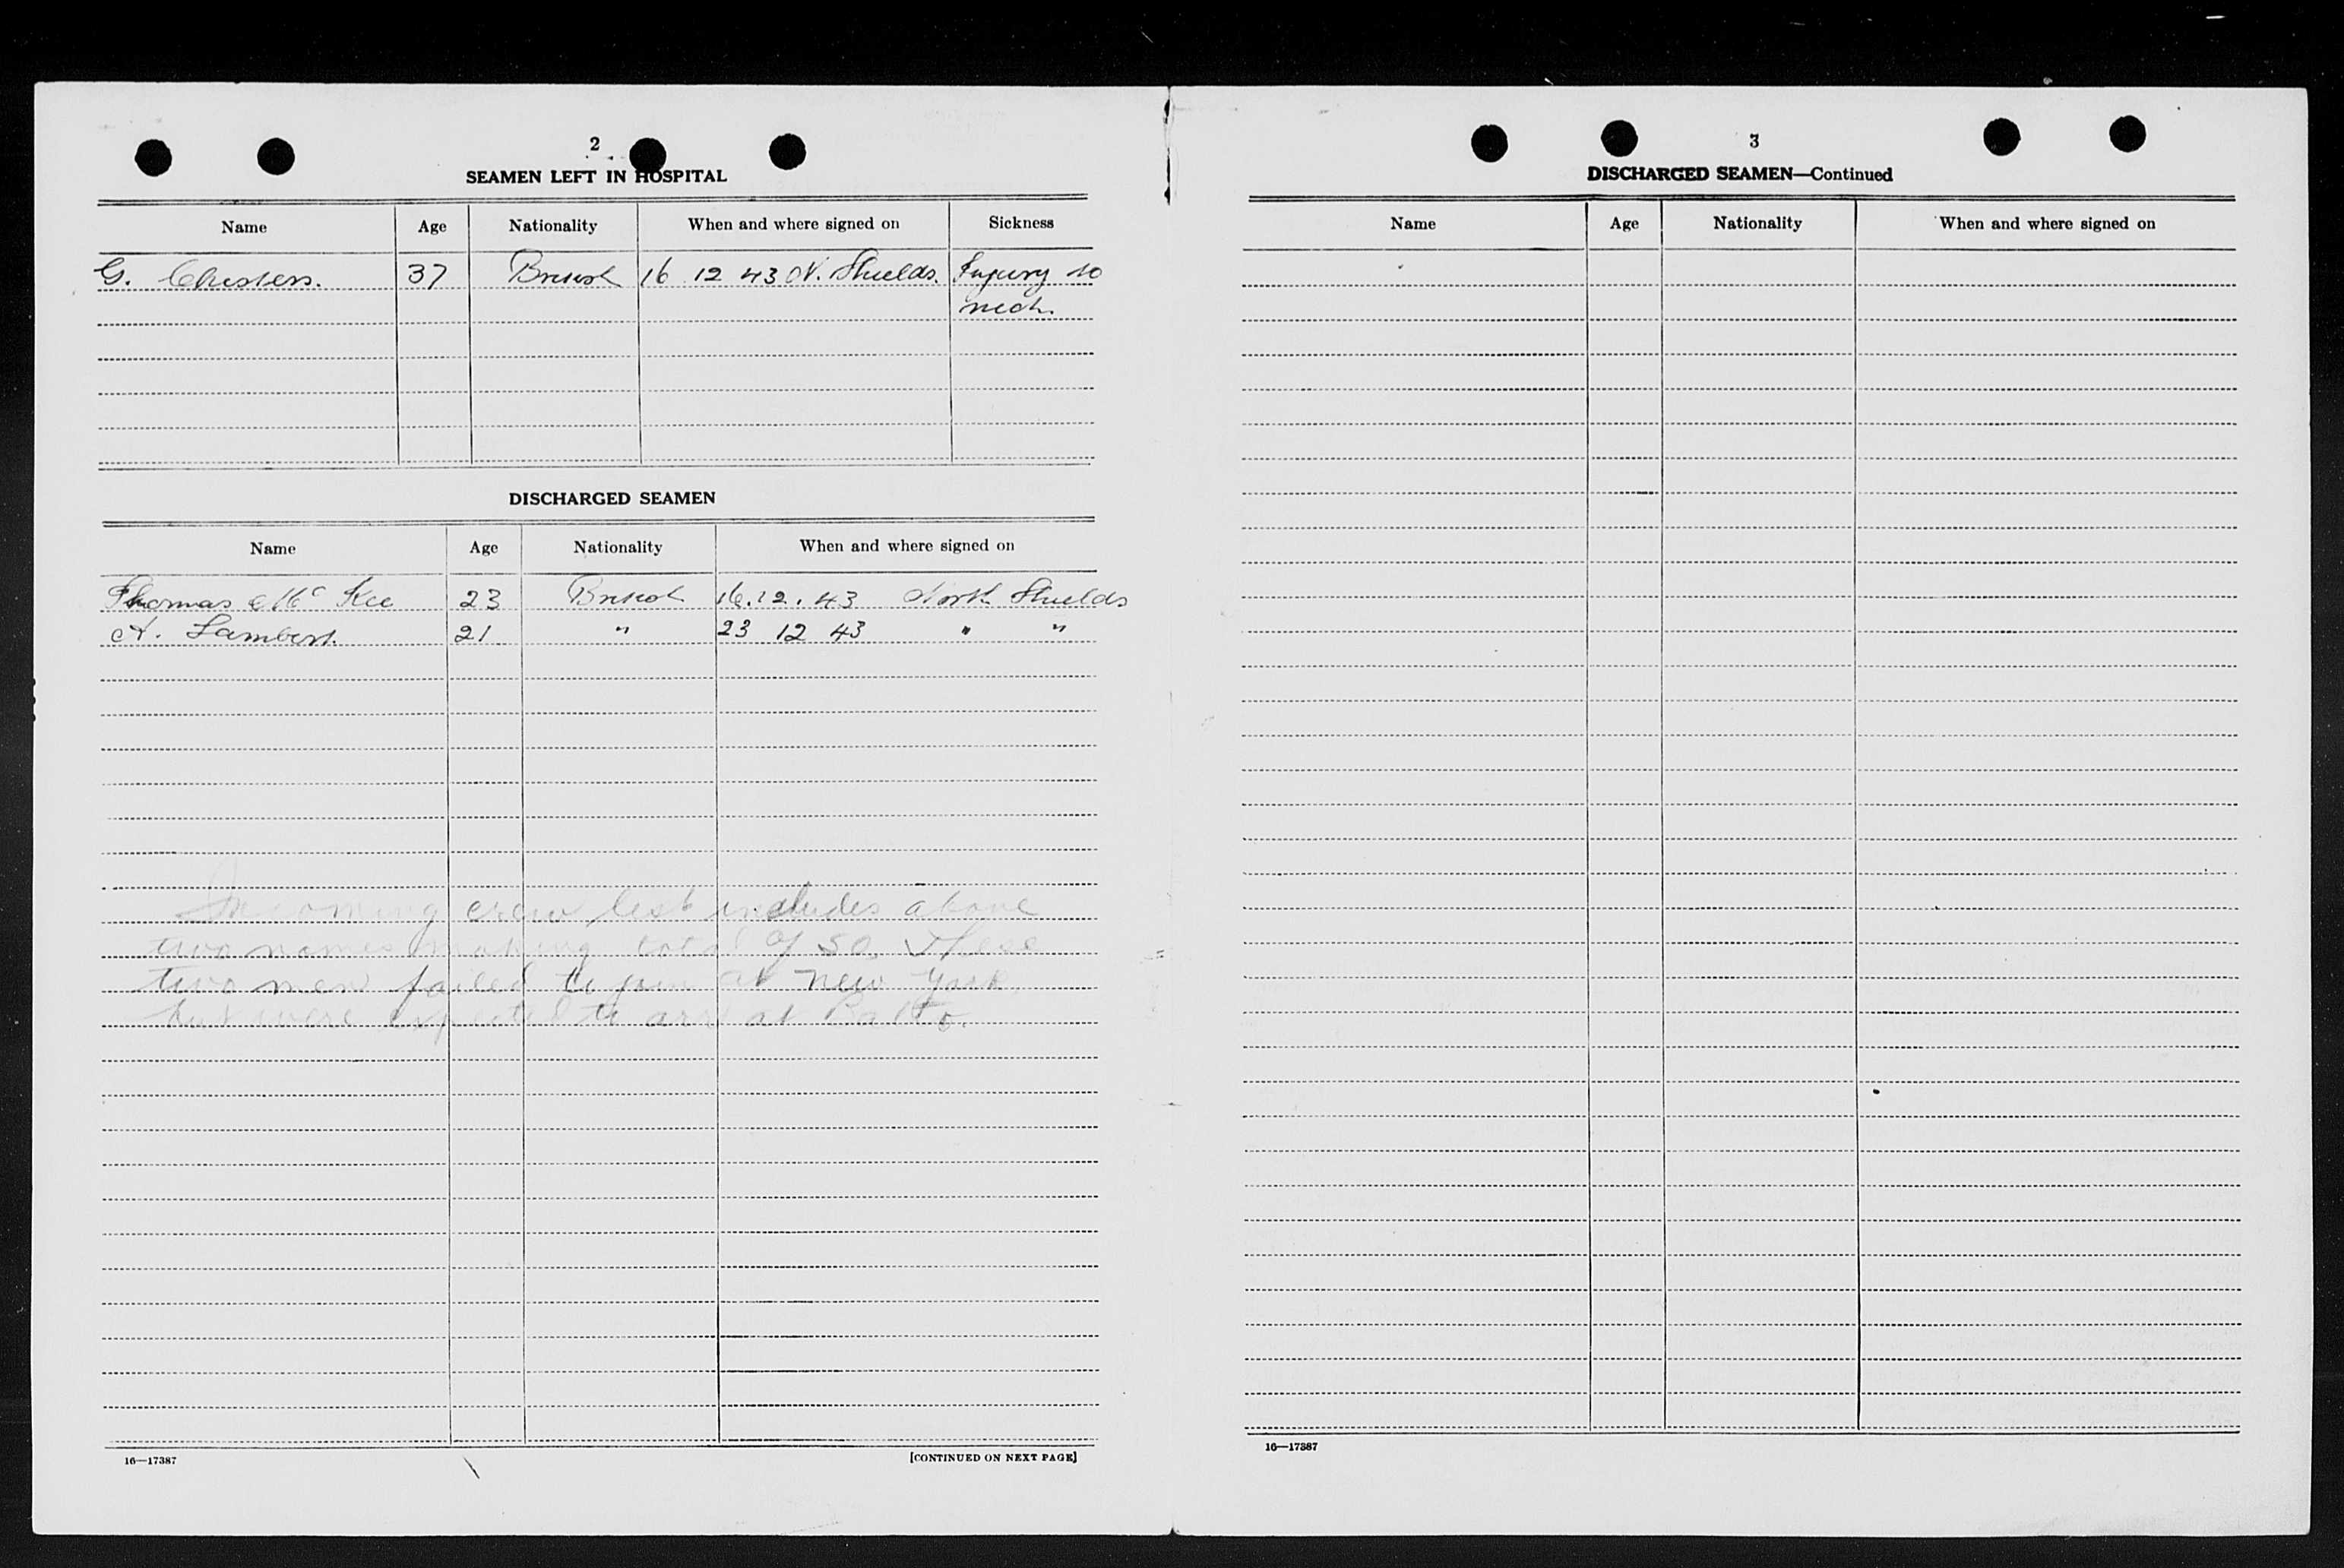 2
SEAMEN LEFT IN HOSPITAL
Name Age Nationality When and where signed on Sickness
G. Chesters. 37 British 16 12 43 N. Shields. Injury to
neck.
DISCHARGED SEAMEN
Name Age Nationality When and where signed on
Thomas Mc Kee 23 British 16.12.43 North Shields
A. Lambert. 21 " 23 12 43 " "
Incoming crew list includes above
two names making total of 50. These
two men failed to join at New York
but were expected to arr at Balto.
16—17387 [CONTINUED ON NEXT PAGE]
3
DISCHARGED SEAMEN—Continued
Name Age Nationality When and where signed on
16—17387